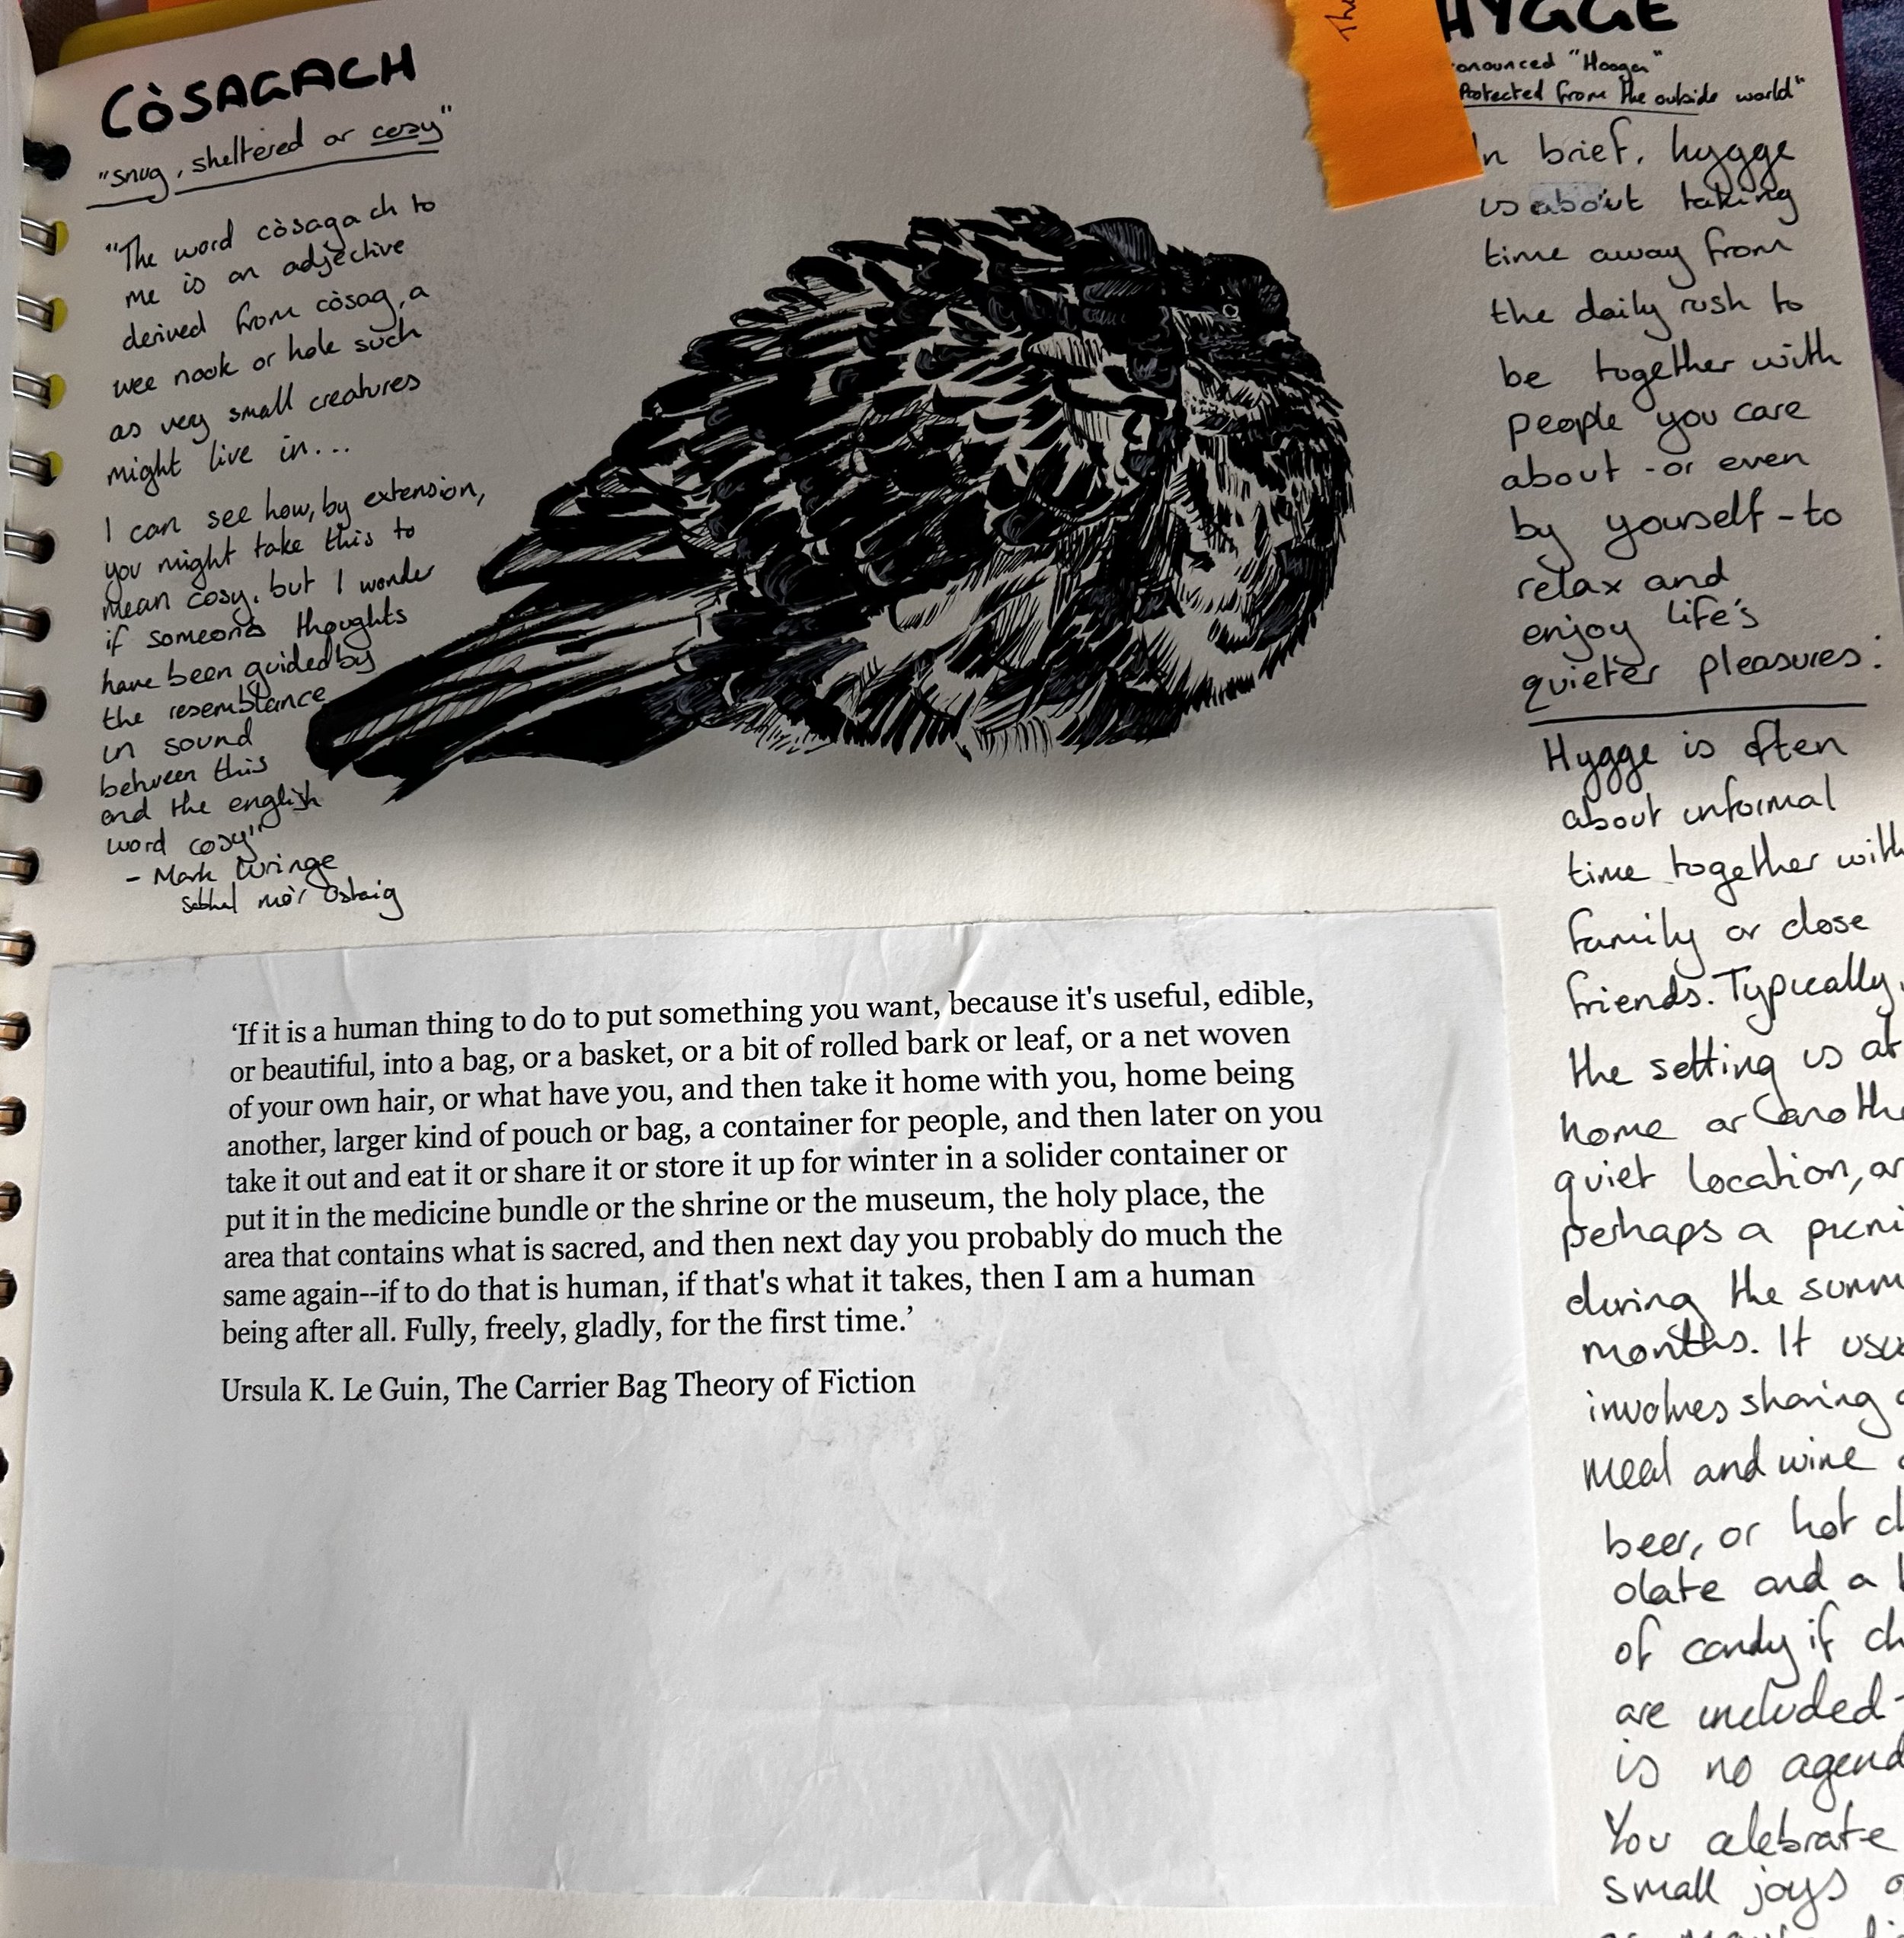 CÒSAGACH
"snug, sheltered or cosy"
"The word còsagach to
me is an adjective
derived from còsag, a
wee nook or hole such
as very small creatures
might live in...
I can see how, by extension,
you might take this to
mean cosy, but I wonder
if someone's thoughts
have been guided by
the resemblance
in sound
between this
and the english
word cosy"
- Mark Wringe
Sabhal mòr Ostaig
‘If it is a human thing to do to put something you want, because it's useful, edible,
or beautiful, into a bag, or a basket, or a bit of rolled bark or leaf, or a net woven
of your own hair, or what have you, and then take it home with you, home being
another, larger kind of pouch or bag, a container for people, and then later on you
take it out and eat it or share it or store it up for winter in a solider container or
put it in the medicine bundle or the shrine or the museum, the holy place, the
area that contains what is sacred, and then next day you probably do much the
same again--if to do that is human, if that's what it takes, then I am a human
being after all. Fully, freely, gladly, for the first time.’
Ursula K. Le Guin, The Carrier Bag Theory of Fiction
The
HYGGE
onounced "Hooga"
Protected from the outside world"
In brief, hygge
is about taking
time away from
the daily rush to
be together with
people you care
about - or even
by yourself - to
relax and
enjoy life's
quieter pleasures.
Hygge is often
about informal
time together with
family or close
friends. Typically,
the setting is at
home or anothe
quiet location, or
perhaps a picni
during the summ
months. It usu
involves sharing a
meal and wine o
beer, or hot ch
olate and a b
of candy if ch
are included -
is no agend
You celebrate
small joys o